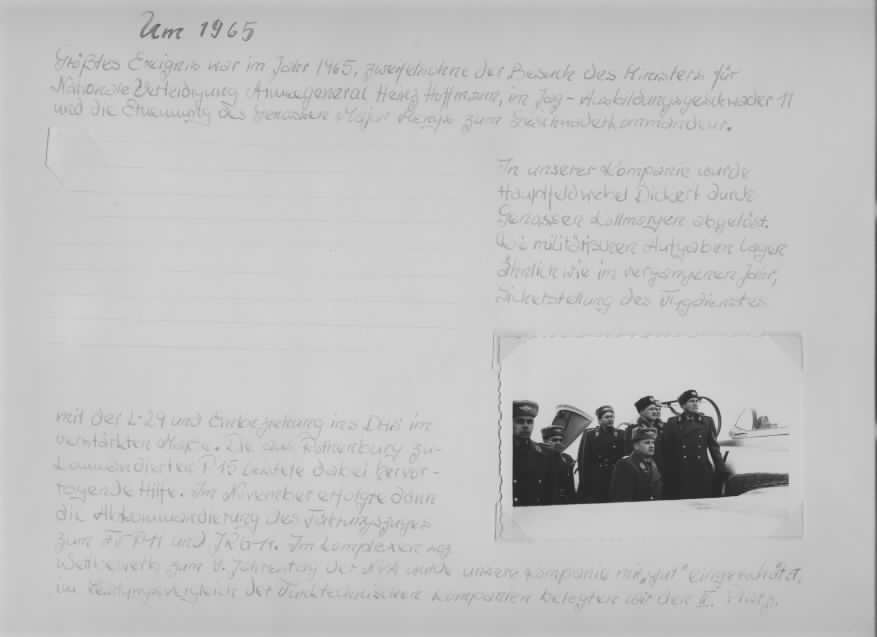 Um 1965
Größtes Ereignis war im Jahr 1965, zweifelsohne der Besuch des Ministers für
Nationale Verteidigung Armeegeneral Heinz Hoffmann, im Jag-Ausbildungsgeschwader 11
und die Ernennung des Genossen Major zum Geschwaderkommandeur.
In unserer Kompanie wurde
Hauptfeldwebel Dickert durch
Genossen Kollmorgen abgelöst.
Die militärischen Aufgaben lagen
ähnlich wie im vergangenen Jahr,
Sicherstellung des Flugdienstes
mit der L-29 und Einbeziehung ins DHS im
verstärkten Maße. Die aus Rothenburg zu-
kommandierten P15 leistete dabei hervor-
ragende Hilfe. Im November erfolgte dann
die Abkommandierung des
zum und Im komplexen soz.
Wettbewerb zum Jahrestag der NVA wurde unsere Kompanie mit "gut" eingeschätzt,
im Leistungsvergleich der Funktechnischen Kompanien belegten wir den II. Platz.